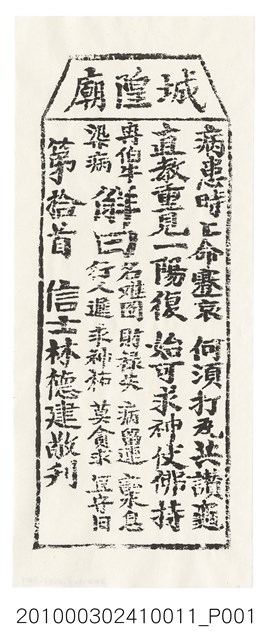 城隍廟
病患時亡命蹇哀 何須打瓦共鑽龜
直教重見一陽復 始可求神仗佛持
冉伯牛染病 解曰 名難圖 財祿失 病留連 求息
行人遲 求神祐 莫貪求 宜守日
第拾首 信士林德建敬刋
201000302410011_P001